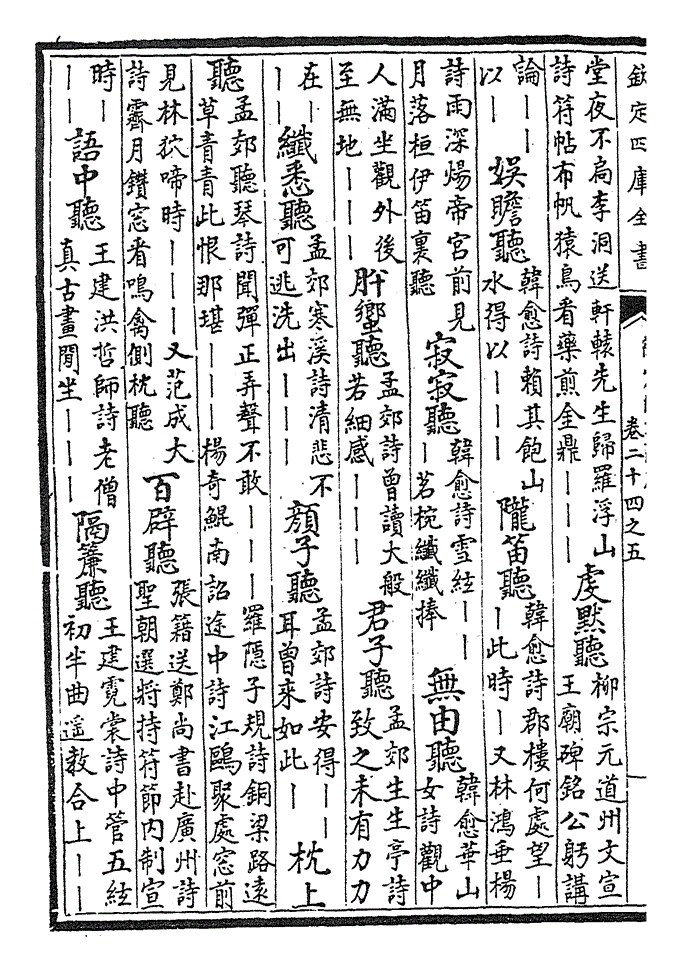 欽定四庫全書
卷二十四之五
堂夜不扃李洞送軒轅先生歸羅浮山
詩符帖布帆猿鳥看藥煎金鼎———
虔默聽
柳宗元道州文宣
王廟碑銘公躬講
論——
以—
娛瞻聽
韓愈詩賴其飽山
水得以———
隴笛聽
韓愈詩郡樓何處望—
—此時—又林鴻垂楊
詩雨深煬帝宮前見
月落桓伊笛裏聽
寂寂聽
韓愈詩雪絃——
—茗椀纖纖捧
無由聽
韓愈華山
女詩觀中
人滿坐觀外後
至無地———
肸蠁聽
孟郊詩曾讀大般
若細感———
君子聽
孟郊生生亭詩
致之未有力力
在—
——
纖悉聽
孟郊寒溪詩清悲不
可逃洗出———
顏子聽
孟郊詩安得——
耳曾來如此—
枕上
聽
孟郊聽琴詩聞彈正弄聲不敢———羅隱子規詩銅梁路遠
草青青此恨那堪———楊奇鯤南詔途中詩江鷗聚處窓前
見林狖啼時———又范成大
詩霽月鑽窓者鳴禽側枕聽
百辟聽
張籍送鄭尚書赴廣州詩
聖朝選將持符節内制宣
時—
——
語中聽
王建洪哲師詩老僧
真古畫閒坐———
隔簾聽
王建霓裳詩中管五絃
初半曲遙教合上——